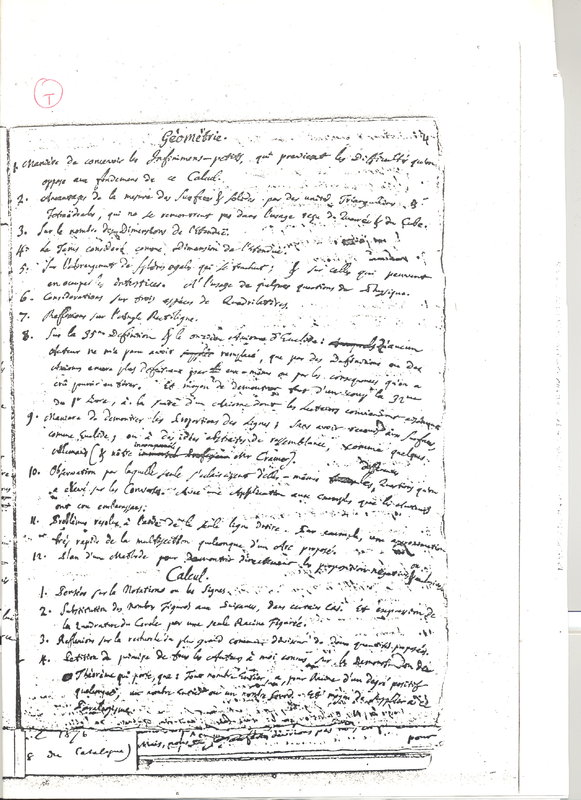 T
4
Géométrie.
1. Manière de concevoir les Infiniment-petits, qui previent les Difficultés qu'on
oppose aux fondemens de ce Calcul.
2. Avantages de la mesure des Surfaces & Solides par des unités Triangulaires &
Tetraëdrales, qui ne se rencontrent pas dans l'usage reçu du Quarré & du Cube.
3. Sur le nombre des Dimensions de l'étendue.
4. Le Tems consideré comme dimension de l'étendue.
5. Sur l'arrangement de Sphères egales qui se touchent; & sur celles qui peuvent
en occuper les interstices. A l'usage de quelques questions de Physique.
6. Considerations sur trois especes de Quadrilatères.
7. Reflexions sur l'Angle Rectiligne.
8. Sur la 35me Definition & le onzième Axiome d'Euclide: qu'aucun
Auteur ne m'a paru avoir remplacé, que par des Definitions ou des
Axiomes encore plus defectueux par eux-mêmes ou par les consequences qu'on a
crû pouvoir en tirer. Et moyen de demontrer tout d'un coup la 32me
du 1er Livre, à la suite d'un Axiome dont les lecteurs
9. Maniere de demontrer les Proportions des Lignes; Sans avoir recours aux Surfaces
comme Euclide, ou à des idées abstraites de ressemblance, comme quelques
Allemands (& nôtre incomparable Mr Cramer).
10. Observation par laquelle seule s'eclaircissent d'elles-mêmes les Doutes qu'on
a élevé sur les Converses. Avec une Application aux exemples que les Auteurs
ont cru embarrassans.
11. Problèmes resolus à l'aide de la seule ligne droite. Par exemple, une approximation
très rapide de la multisection quelconque d'un Arc proposé.
12. Plan d'un Methode pour demontrer directement les propositions négatives
Calcul.
1. Pensées sur les Notations ou les Signes.
2. Substitution des nombres Figurés aux Puissances, dans certains cas. Et expression de
la Quadrature du Cercle par une seule Racine Figurée.
3. Reflexions sur la recherche du plus grand commun diviseur de deux quantités proposées.
4. Petition de principe de tous les Auteurs à moi connus, sur la Demonstration du
Théorème qui porte, que: Tout nombre entier a, pour Racine d'un degré positif
quelconque, un nombre entier ou un nombre sourd. Et moyen de suppléer à ce
Paralogisme.
1876
8 du Catalogue)
Mais, nous
pour